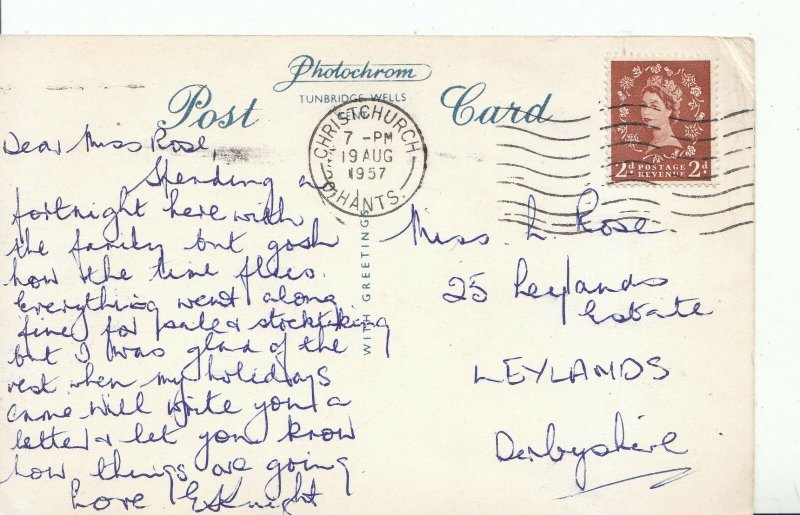 Photochrom
TUNBRIDGE WELLS
KENT
Post Card
CHRISTCHURCH
7 - PM
19 AUG
1957
HANTS.
2d POSTAGE REVENUE 2d
WITH GREETINGS
Dear Miss Rose,
Spending a
fortnight here with
the family but gosh
how the time flies.
Everything went along
fine for sale & stocktaking
but I was glad of the
rest when my holidays
came will write you a
letter & let you know
how things are going
Love EKnight
Miss L. Rose.
25 Leylands
Estate
LEYLANDS
Derbyshire